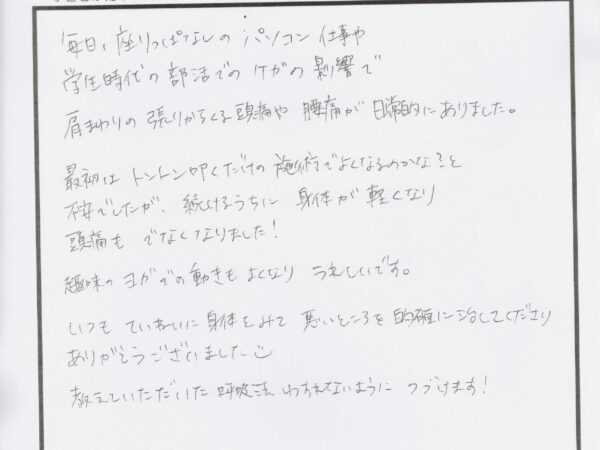 毎日、座りっぱなしの パソコン 仕事や
学生時代の部活でのケガの影響で
肩まわりの張りからくる頭痛や 腰痛が 日常的にありました。
最初は トントン叩くだけの施術でよくなるのかな?と
不安でしたが、続けるうちに 身体が 軽くなり
頭痛も でなくなりました!
趣味のヨガでの動きもよくなり うれしいです。
いつも ていねいに身体をみて 悪いところを的確に治してくださり
ありがとうございました
教えていただいた呼吸法 わすれないように つづけます!